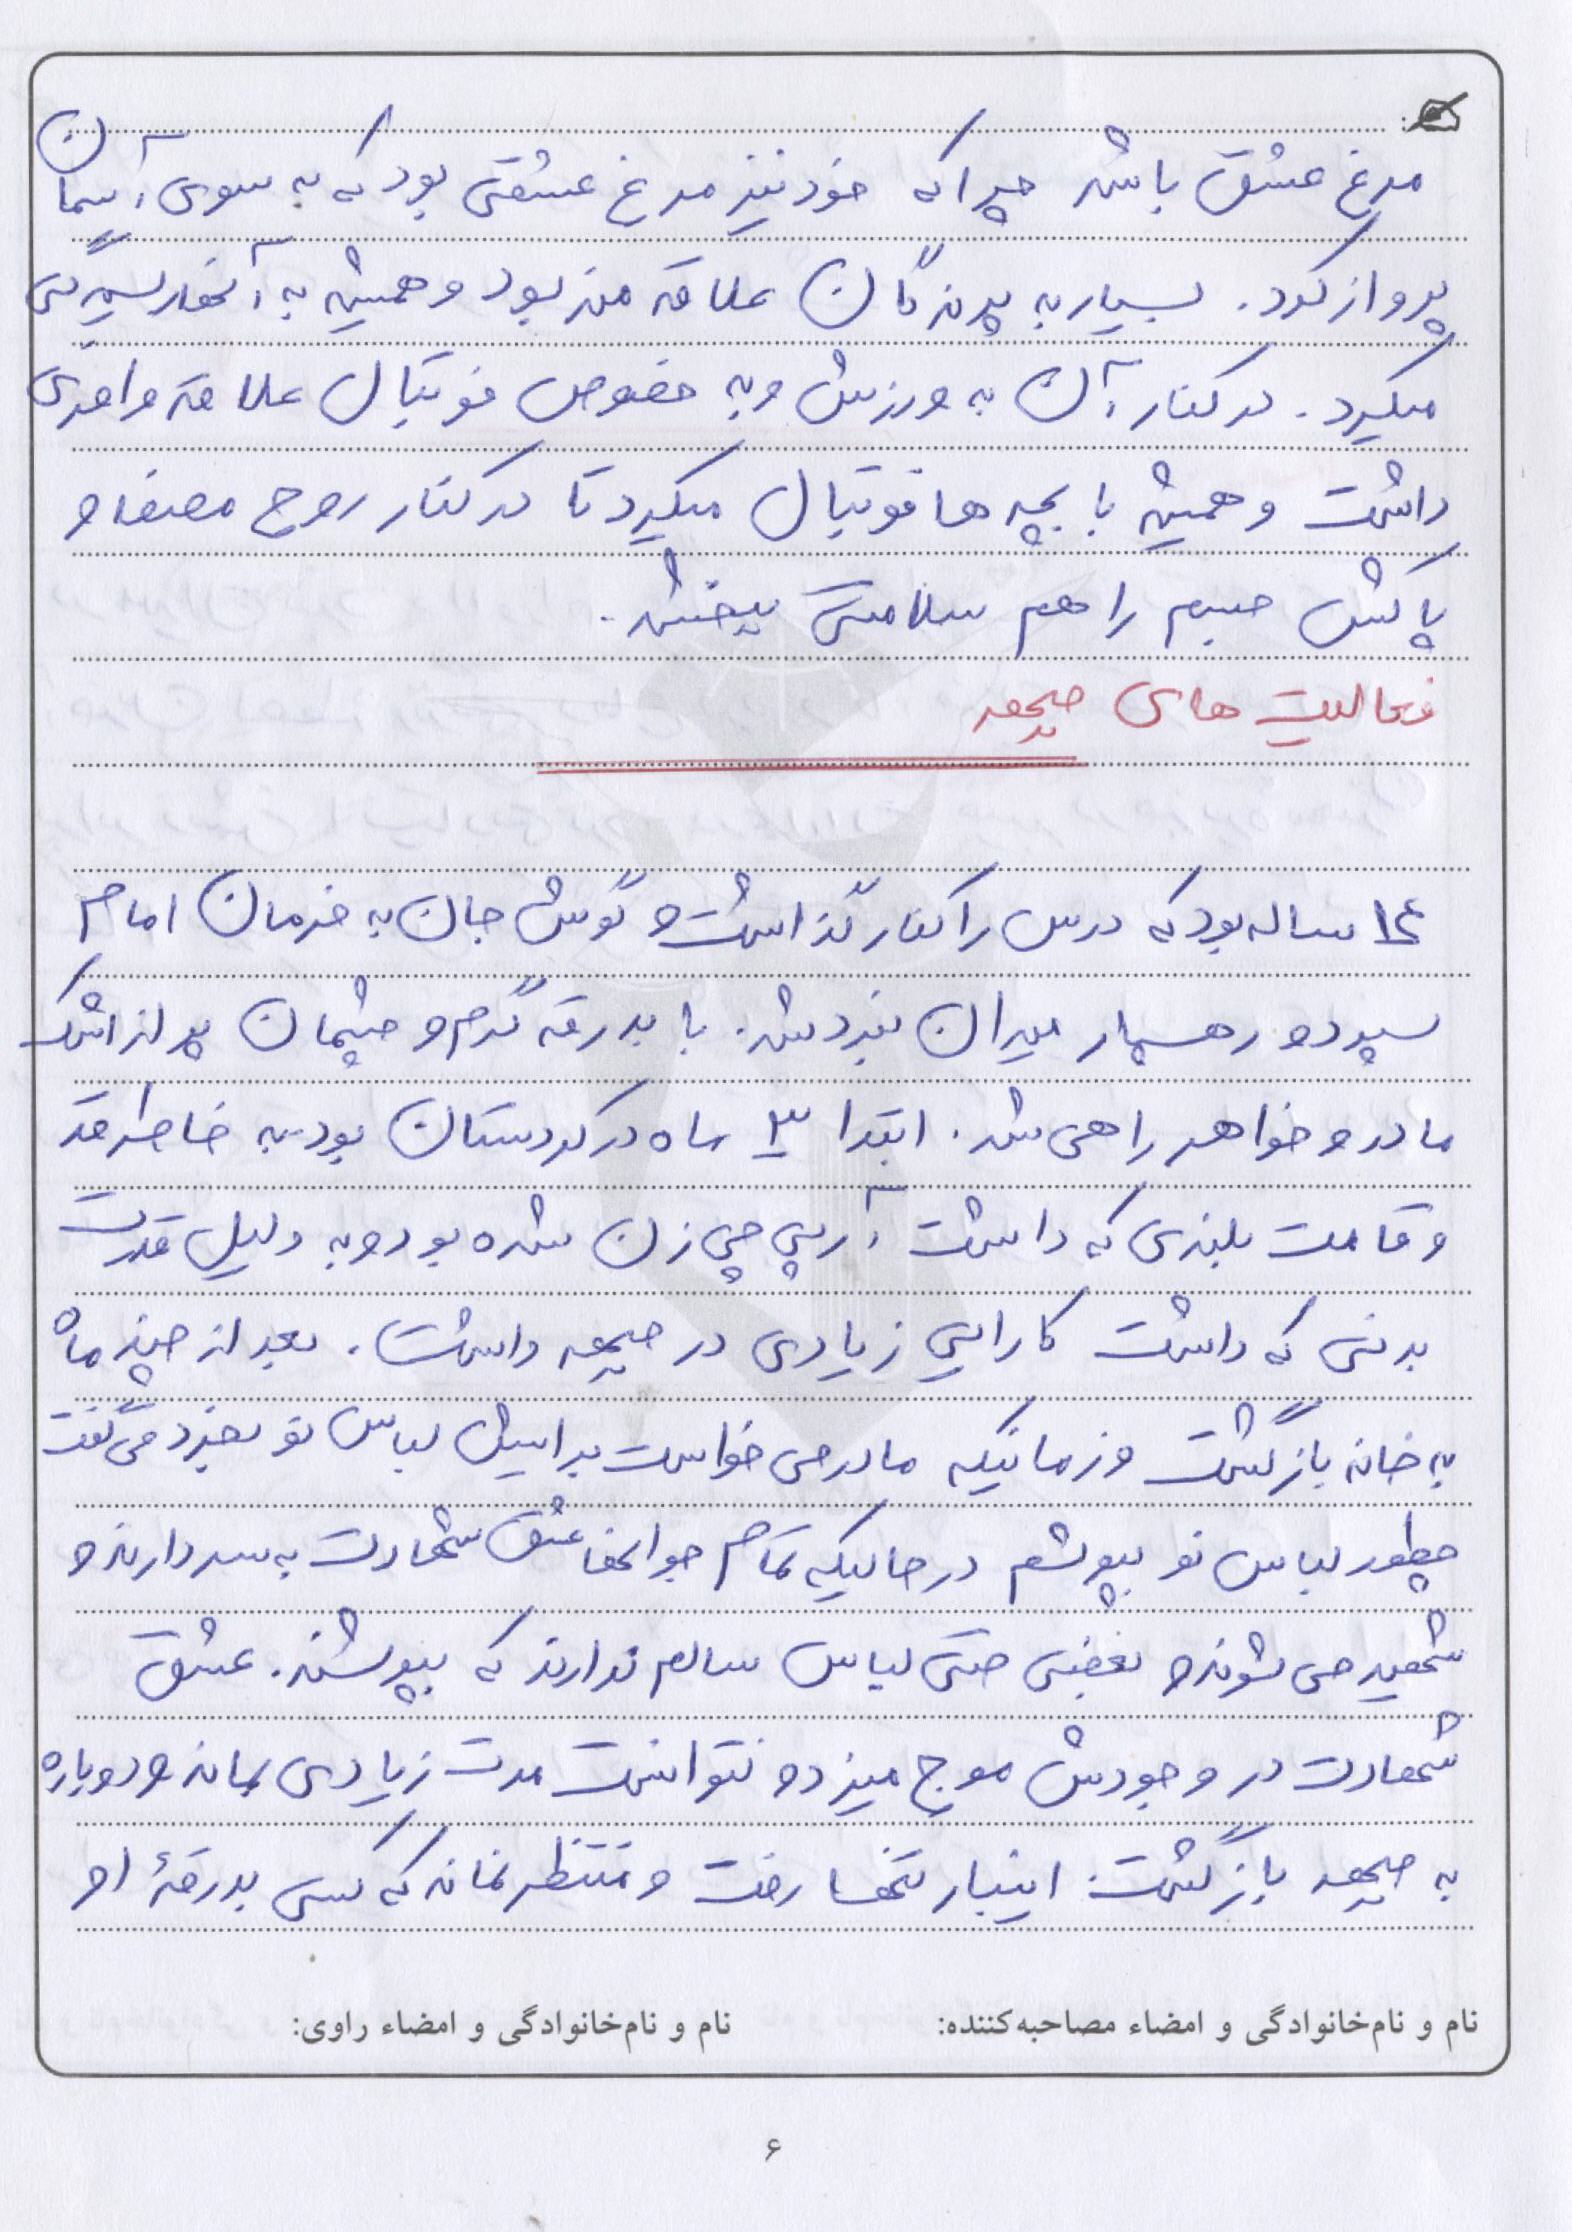 مرغ عشق باشد چرا که خود نیز مرغ عشقی بود که به سوی آسمان
پرواز کرد. بسیار به پرندگان علاقه مند بود و همیشه به آنها رسیدگی
میکرد. در کنار آن به ورزش و به خصوص فوتبال علاقه وافری
داشت و همیشه با بچه ها فوتبال میکرد تا در کنار روح مصفا و
پاکش جسم را هم سلامتی ببخشد.
فعالیت های جبهه
۱۴ ساله بود که درس را کنار گذاشت و گوش جان به فرمان امام
سپرد و رهسپار میدان نبرد شد. با بدرقه گرم و چشمان پر از اشک
مادر و خواهر راهی شد. ابتدا ۳ ماه در کردستان بود به خاطر قد
و قامت بلندی که داشت آرپی جی زن شده بود و به دلیل قدرت
بدنی که داشت کارایی زیادی در جبهه داشت. بعد از چند ماه
به خانه بازگشت و زمانیکه مادر می خواست برایش لباس نو بخرد می گفت
چطور لباس نو بپوشم در حالیکه تمام جوانها عشق شهادت به سر دارند و
شهید می شوند و بعضی حتی لباس سالم ندارند که بپوشند. عشق
شهادت در وجودش موج میزد و نتوانست مدت زیادی بماند و دوباره
به جبهه بازگشت. اینبار تنها رفت و منتظر نماند که کسی بدرقهٔ او
نام و نام‌خانوادگی و امضاء مصاحبه‌کننده: نام و نام‌خانوادگی و امضاء راوی:
۶